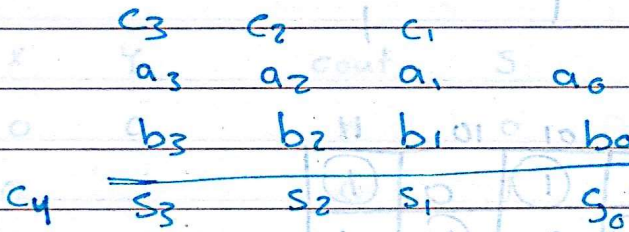 c3 c2 c1
a3 a2 a1 a0
b3 b2 b1 b0
c4 s3 s2 s1 s0